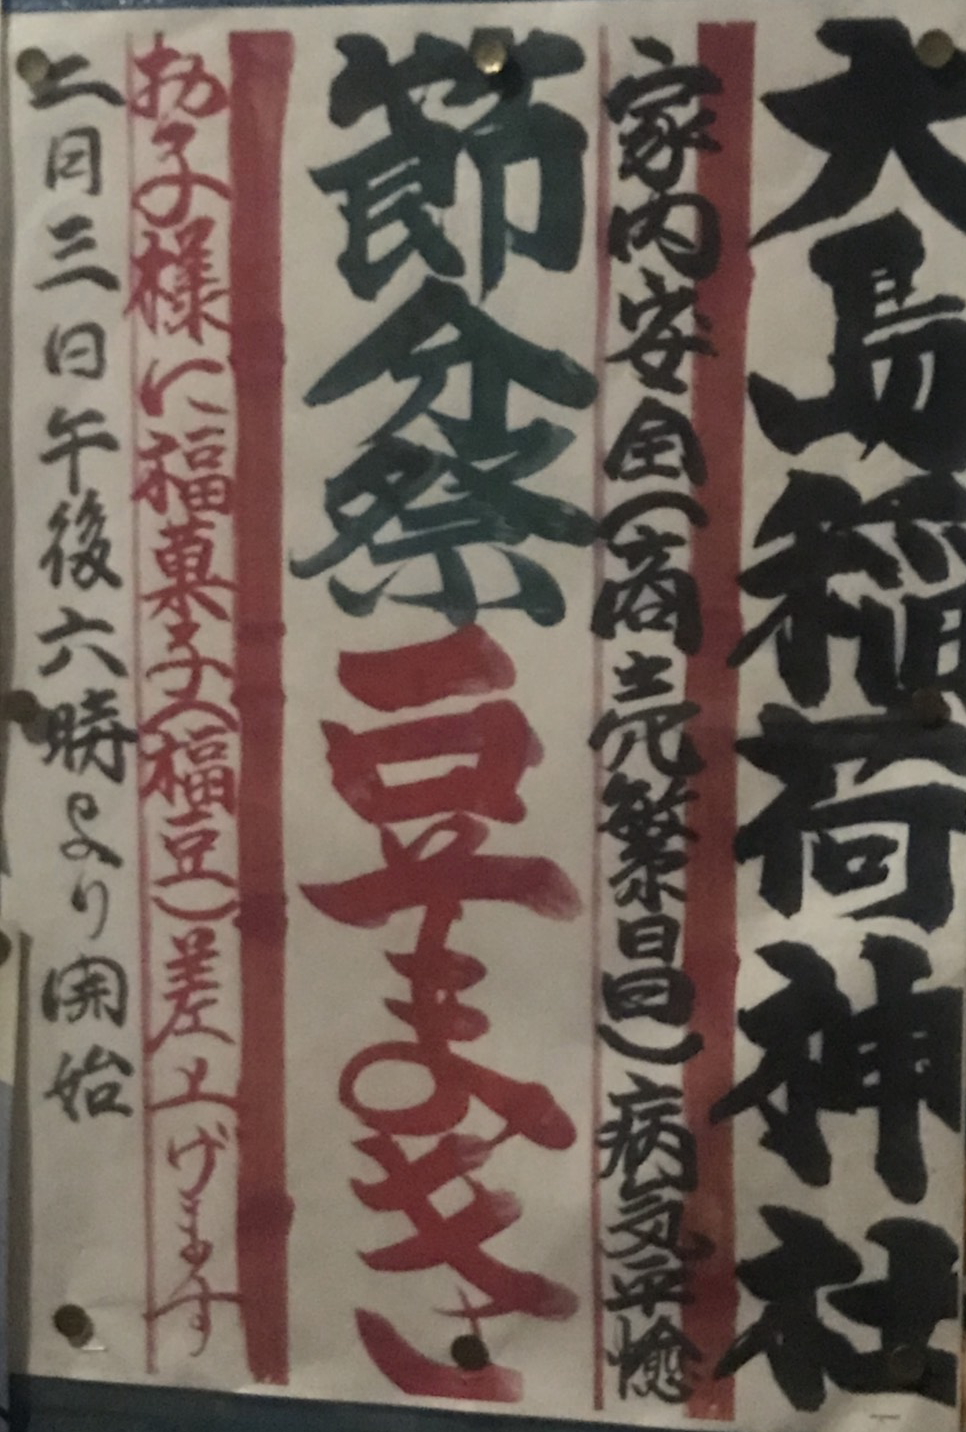 大島稲荷神社
家内安全(商売繁昌)病気平癒
節分祭豆まき
お子様に福菓子(福豆)差上げます
二月三日午後六時より開始